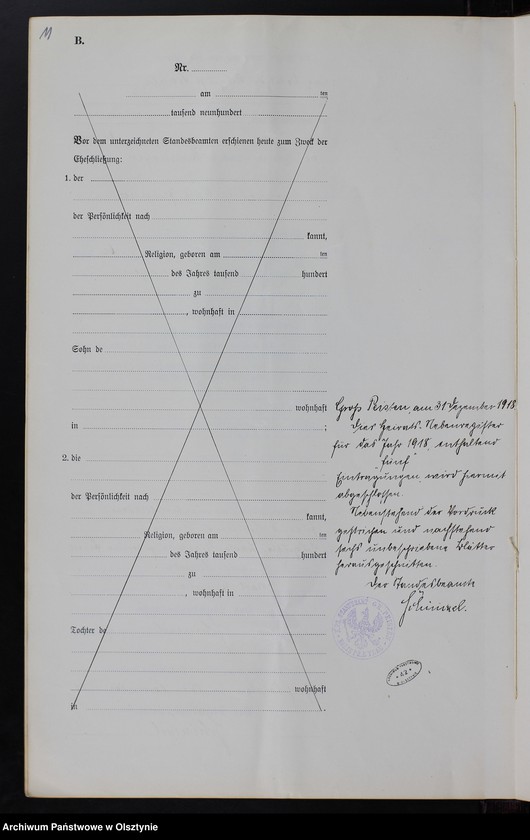 11
B.
Nr.
am ten
tausend neunhundert
Vor dem unterzeichneten Standesbeamten erschienen heute zum Zweck der
Eheschließung:
1. der
der Persönlichkeit nach
kannt,
Religion, geboren am ten
des Jahres tausend hundert
zu
, wohnhaft in
Sohn de
wohnhaft
in ;
2. die
der Persönlichkeit nach
kannt,
Religion, geboren am ten
des Jahres tausend hundert
zu
, wohnhaft in
Tochter de
wohnhaft
in .
Groß am 31 Dezember 1918
Das Heirats-Nebenregister
für das Jahr 1918, enthaltend
"fünf"
Eintragungen wird hiermit
abgeschlossen.
Nebenstehend der Vordruck
gestrichen und nachstehend
sechs unbeschriebene Blätter
herausgeschnitten.
Der Standesbeamte
Archiwum Państwowe w Olsztynie